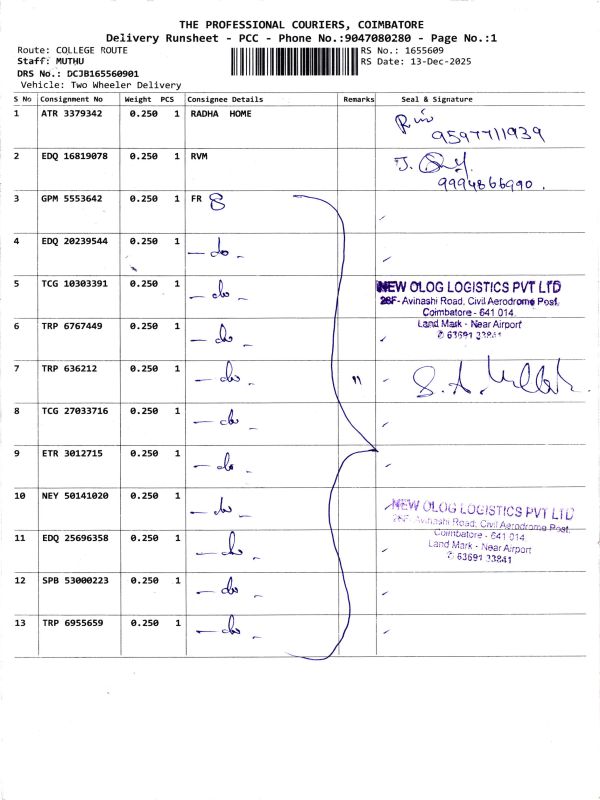 THE PROFESSIONAL COURIERS, COIMBATORE
Delivery Runsheet - PCC - Phone No.:9047080280 - Page No.:1
Route: COLLEGE ROUTE
RS No.: 1655609
Staff: MUTHU
RS Date: 13-Dec-2025
DRS No.: DCJB165560901
Vehicle: Two Wheeler Delivery
S No Consignment No Weight PCS Consignee Details Remarks Seal & Signature
1 ATR 3379342 0.250 1 RADHA HOME
9597711939
2 EDQ 16819078 0.250 1 RVM
9994866990.
3 GPM 5553642 0.250 1 FR 8
4 EDQ 20239544 0.250 1 - do -
5 TCG 10303391 0.250 1 - do -
NEW OLOG LOGISTICS PVT LTD
28F- Avinashi Road, Civil Aerodrome Post,
Coimbatore - 641 014.
6 TRP 6767449 0.250 1 - do -
Land Mark - Near Airport
✆ 63691 33841
7 TRP 636212 0.250 1 - do - 11
8 TCG 27033716 0.250 1 - do -
9 ETR 3012715 0.250 1 - do -
10 NEY 50141020 0.250 1 - do -
NEW OLOG LOGISTICS PVT LTD
28F- Avinashi Road, Civil Aerodrome Post,
Coimbatore - 641 014
11 EDQ 25696358 0.250 1 - do -
Land Mark - Near Airport
✆ 63691 33841
12 SPB 53000223 0.250 1 - do -
13 TRP 6955659 0.250 1 - do -